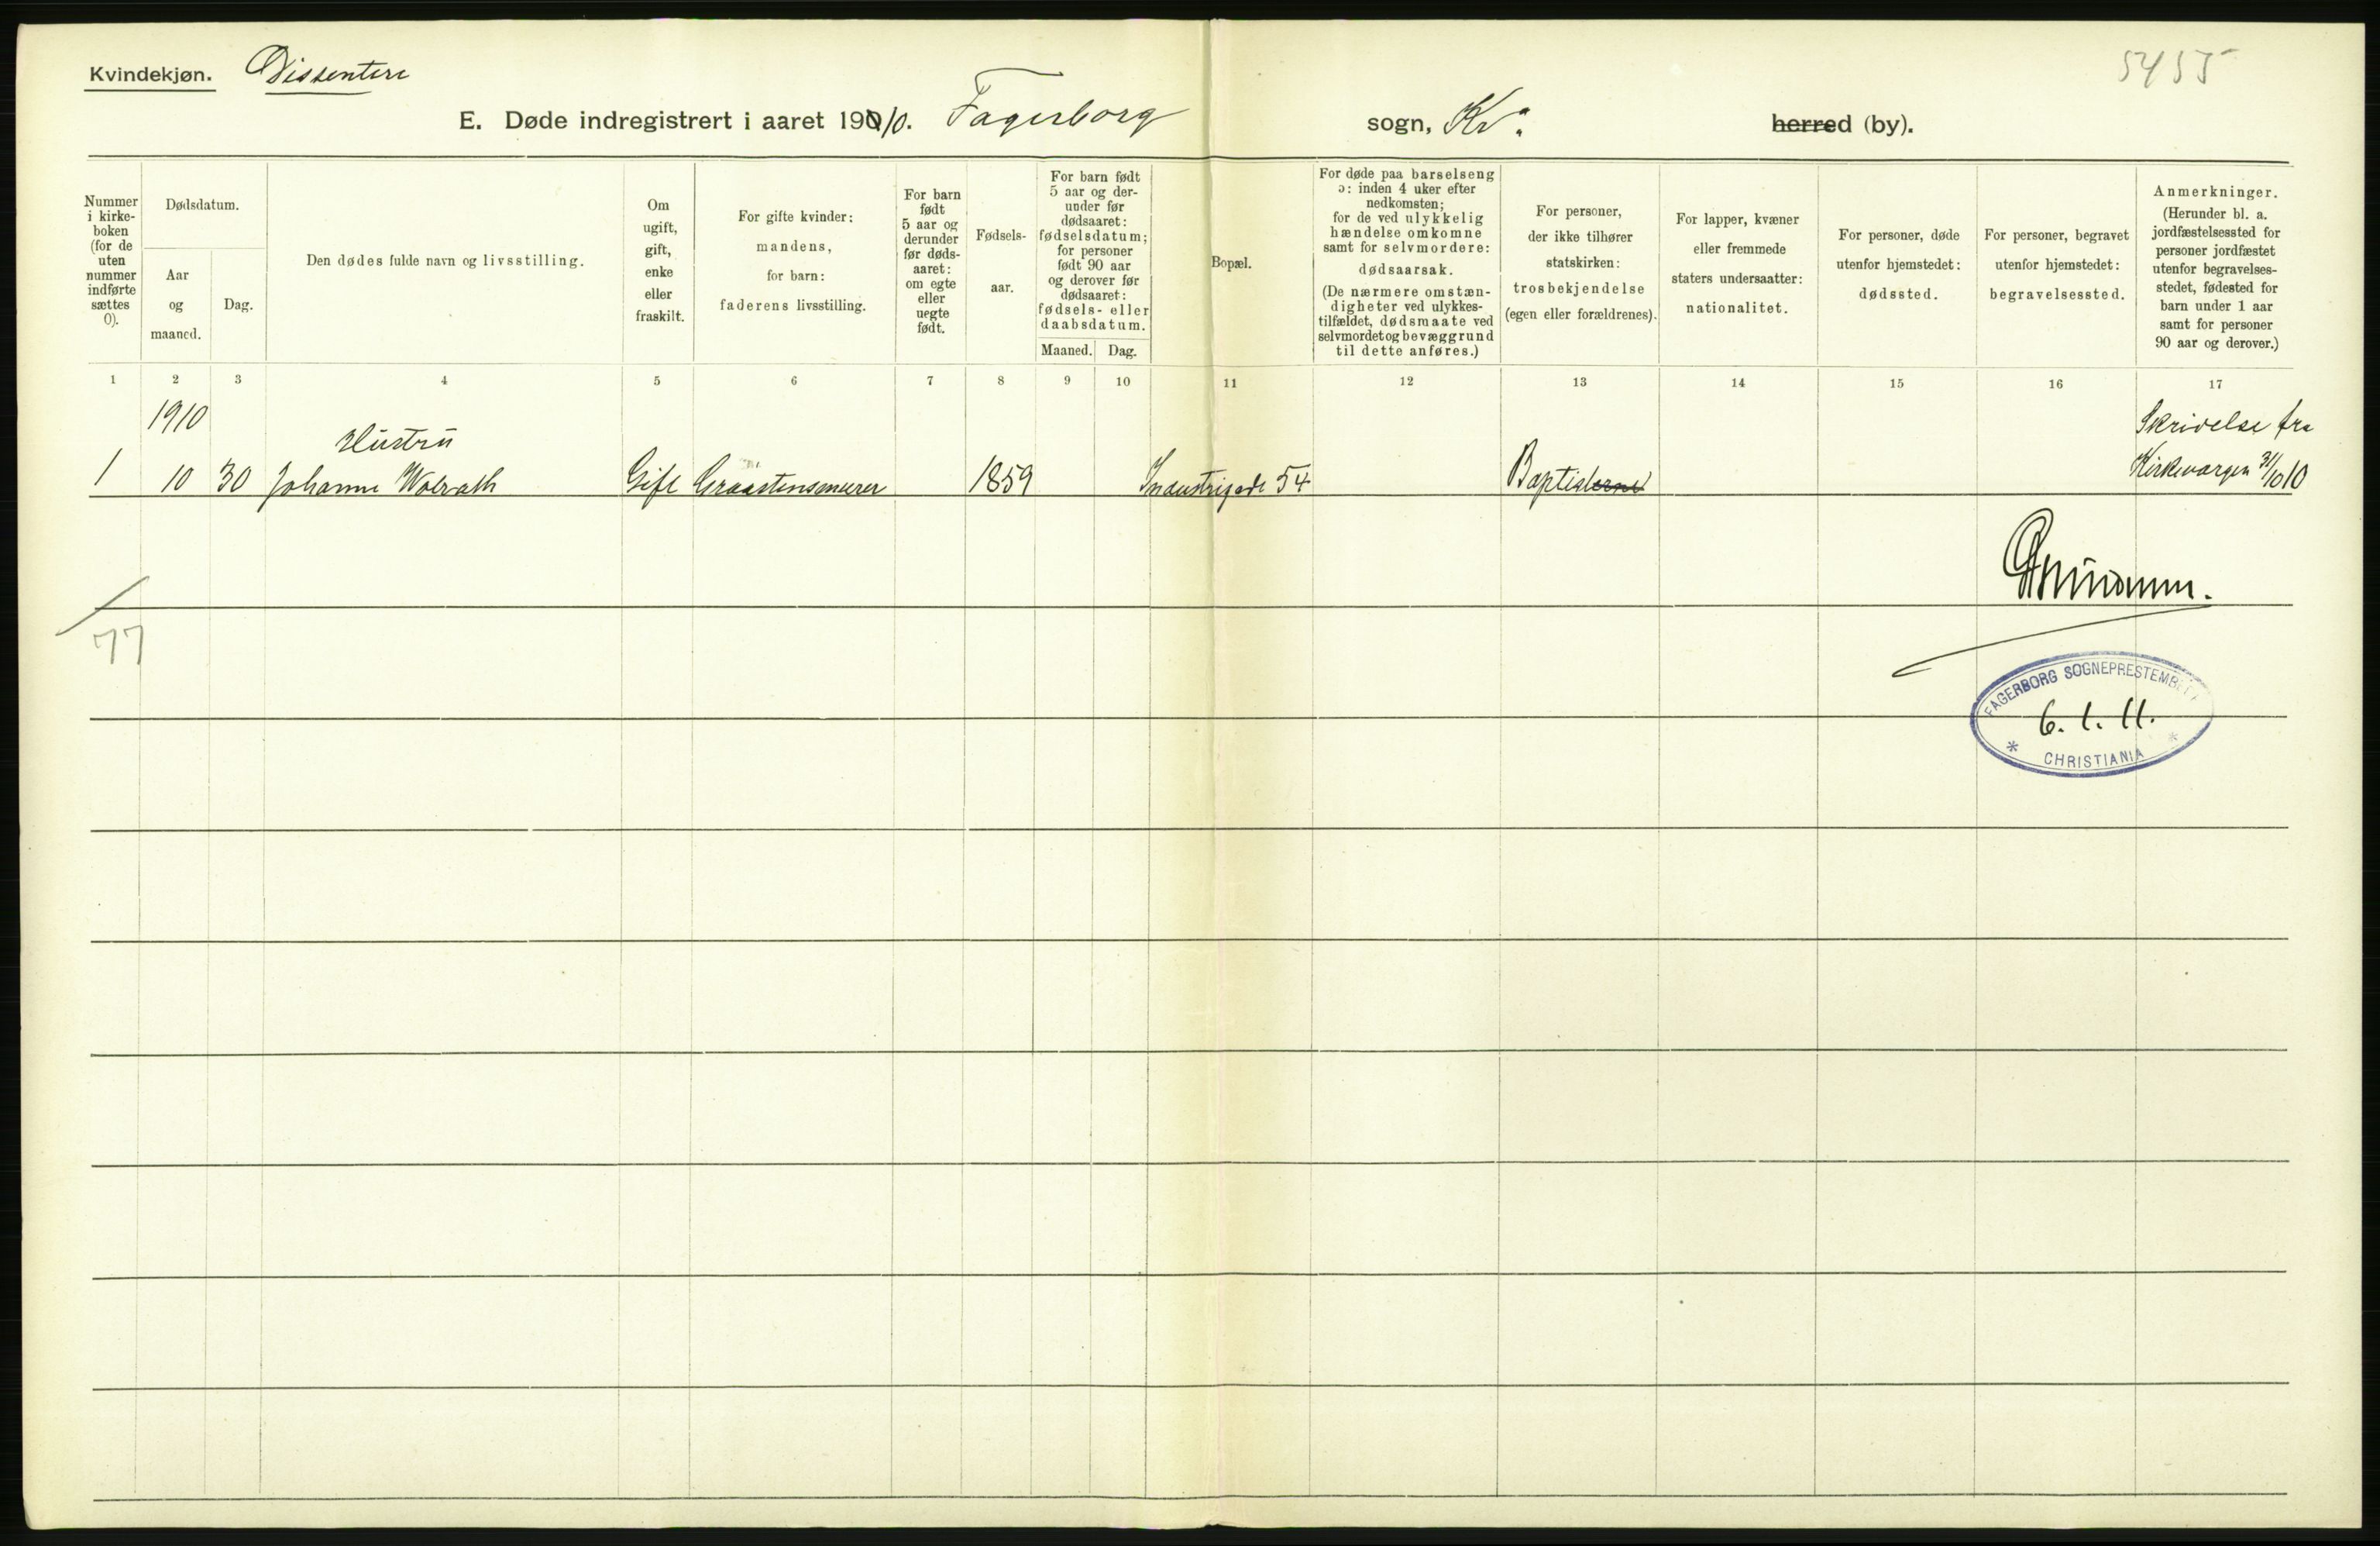 Kvindekjøn. Dissentere
5455
E. Døde indregistrert i aaret 1910. Fagerborg sogn, Kra. herred (by).
Nummer
i kirke-
boken
(for de
uten
nummer
indførte
sættes
0).
Dødsdatum.
Aar
og
maaned.
Dag.
Den dødes fulde navn og livsstilling.
Om
ugift,
gift,
enke
eller
fraskilt.
For gifte kvinder:
mandens,
for barn:
faderens livsstilling.
For barn
født
5 aar og
derunder
før døds-
aaret:
om egte
eller
uegte
født.
Fødsels-
aar.
For barn født
5 aar og der-
under før
dødsaaret:
fødselsdatum;
for personer
født 90 aar
og derover før
dødsaaret:
fødsels- eller
daabsdatum.
Maaned. Dag.
Bopæl.
For døde paa barselseng
ɔ: inden 4 uker efter
nedkomsten;
for de ved ulykkelig
hændelse omkomne
samt for selvmordere:
dødsaarsak.
(De nærmere omstæn-
digheter ved ulykkes-
tilfældet, dødsmaate ved
selvmordet og bevæggrund
til dette anføres.)
For personer,
der ikke tilhører
statskirken:
trosbekjendelse
(egen eller forældrenes).
For lapper, kvæner
eller fremmede
staters undersaatter:
nationalitet.
For personer, døde
utenfor hjemstedet:
dødssted.
For personer, begravet
utenfor hjemstedet:
begravelsessted.
Anmerkninger.
(Herunder bl. a.
jordfæstelsessted for
personer jordfæstet
utenfor begravelses-
stedet, fødested for
barn under 1 aar
samt for personer
90 aar og derover.)
1 2 3 4 5 6 7 8 9 10 11 12 13 14 15 16 17
1910
Hustru
Skrivelse fra
1 10 30 Johanne Wolrath Gift Graastensmurer 1859 Industrigade 54 Baptisterne Kirkevergen 31/10 10
77
FAGERBORG SOGNEPRESTEMBETE
6.1.11.
* CHRISTIANIA *